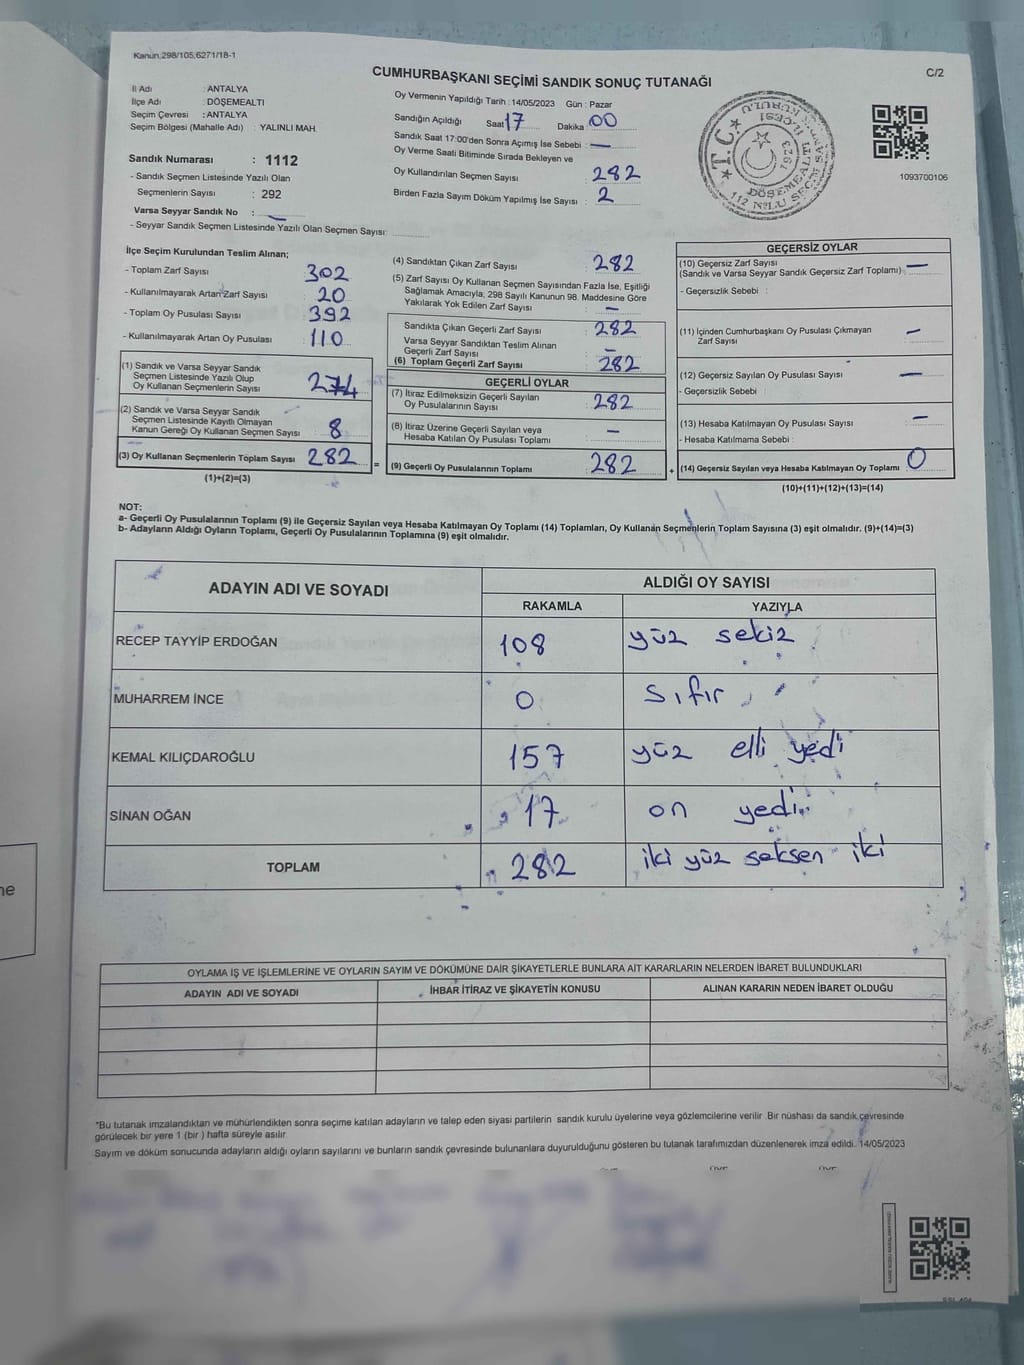 Kanun 298/105,6271/18-1
C/2
CUMHURBAŞKANI SEÇİMİ SANDIK SONUÇ TUTANAĞI
İl Adı : ANTALYA
İlçe Adı : DÖŞEMEALTI
Seçim Çevresi : ANTALYA
Seçim Bölgesi (Mahalle Adı) : YALINLI MAH.
Sandık Numarası : 1112
- Sandık Seçmen Listesinde Yazılı Olan
Seçmenlerin Sayısı : 292
Varsa Seyyar Sandık No : —
- Seyyar Sandık Seçmen Listesinde Yazılı Olan Seçmen Sayısı:
Oy Vermenin Yapıldığı Tarih : 14/05/2023 Gün : Pazar
Sandığın Açıldığı Saat 17 Dakika : 00
Sandık Saat 17:00'den Sonra Açımış İse Sebebi : —
Oy Verme Saati Bitiminde Sırada Bekleyen ve
Oy Kullandırılan Seçmen Sayısı : 282
Birden Fazla Sayım Döküm Yapılmış İse Sayısı : 2
T.C.
DÖŞEMEALTI
1923
1093700106
İlçe Seçim Kurulundan Teslim Alınan;
- Toplam Zarf Sayısı : 302
- Kullanılmayarak Artan Zarf Sayısı : 20
- Toplam Oy Pusulası Sayısı : 392
- Kullanılmayarak Artan Oy Pusulası : 110
(1) Sandık ve Varsa Seyyar Sandık
Seçmen Listesinde Yazılı Olup
Oy Kullanan Seçmenlerin Sayısı : 274
(2) Sandık ve Varsa Seyyar Sandık
Seçmen Listesinde Kayıtlı Olmayan
Kanun Gereği Oy Kullanan Seçmen Sayısı : 8
(3) Oy Kullanan Seçmenlerin Toplam Sayısı : 282
(1)+(2)=(3)
(4) Sandıktan Çıkan Zarf Sayısı : 282
(5) Zarf Sayısı Oy Kullanan Seçmen Sayısından Fazla İse, Eşitliği
Sağlamak Amacıyla, 298 Sayılı Kanunun 98. Maddesine Göre
Yakılarak Yok Edilen Zarf Sayısı : —
Sandıkta Çıkan Geçerli Zarf Sayısı : 282
Varsa Seyyar Sandıktan Teslim Alınan
Geçerli Zarf Sayısı : —
(6) Toplam Geçerli Zarf Sayısı : 282
GEÇERLİ OYLAR
(7) İtiraz Edilmeksizin Geçerli Sayılan
Oy Pusulalarının Sayısı : 282
(8) İtiraz Üzerine Geçerli Sayılan veya
Hesaba Katılan Oy Pusulası Toplamı : —
= (9) Geçerli Oy Pusulalarının Toplamı : 282 +
GEÇERSİZ OYLAR
(10) Geçersiz Zarf Sayısı : —
(Sandık ve Varsa Seyyar Sandık Geçersiz Zarf Toplamı)
- Geçersizlik Sebebi :
(11) İçinden Cumhurbaşkanı Oy Pusulası Çıkmayan
Zarf Sayısı : —
(12) Geçersiz Sayılan Oy Pusulası Sayısı : —
- Geçersizlik Sebebi :
(13) Hesaba Katılmayan Oy Pusulası Sayısı : —
- Hesaba Katılmama Sebebi :
(14) Geçersiz Sayılan veya Hesaba Katılmayan Oy Toplamı : 0
(10)+(11)+(12)+(13)=(14)
NOT:
a- Geçerli Oy Pusulalarının Toplamı (9) ile Geçersiz Sayılan veya Hesaba Katılmayan Oy Toplamı (14) Toplamları, Oy Kullanan Seçmenlerin Toplam Sayısına (3) eşit olmalıdır. (9)+(14)=(3)
b- Adayların Aldığı Oyların Toplamı, Geçerli Oy Pusulalarının Toplamına (9) eşit olmalıdır.
ADAYIN ADI VE SOYADI ALDIĞI OY SAYISI
RAKAMLA YAZIYLA
RECEP TAYYİP ERDOĞAN 108 yüz sekiz
MUHARREM İNCE 0 sıfır
KEMAL KILIÇDAROĞLU 157 yüz elli yedi
SİNAN OĞAN 17 on yedi
TOPLAM 282 iki yüz seksen iki
OYLAMA İŞ VE İŞLEMLERİNE VE OYLARIN SAYIM VE DÖKÜMÜNE DAİR ŞİKAYETLERLE BUNLARA AİT KARARLARIN NELERDEN İBARET BULUNDUKLARI
ADAYIN ADI VE SOYADI İHBAR İTİRAZ VE ŞİKAYETİN KONUSU ALINAN KARARIN NEDEN İBARET OLDUĞU
*Bu tutanak imzalandıktan ve mühürlendikten sonra seçime katılan adayların ve talep eden siyasi partilerin sandık kurulu üyelerine veya gözlemcilerine verilir. Bir nüshası da sandık çevresinde
görülecek bir yere 1 (bir) hafta süreyle asılır.
Sayım ve döküm sonucunda adayların aldığı oyların sayılarını ve bunların sandık çevresinde bulunanlara duyurulduğunu gösteren bu tutanak tarafımızdan düzenlenerek imza edildi. 14/05/2023